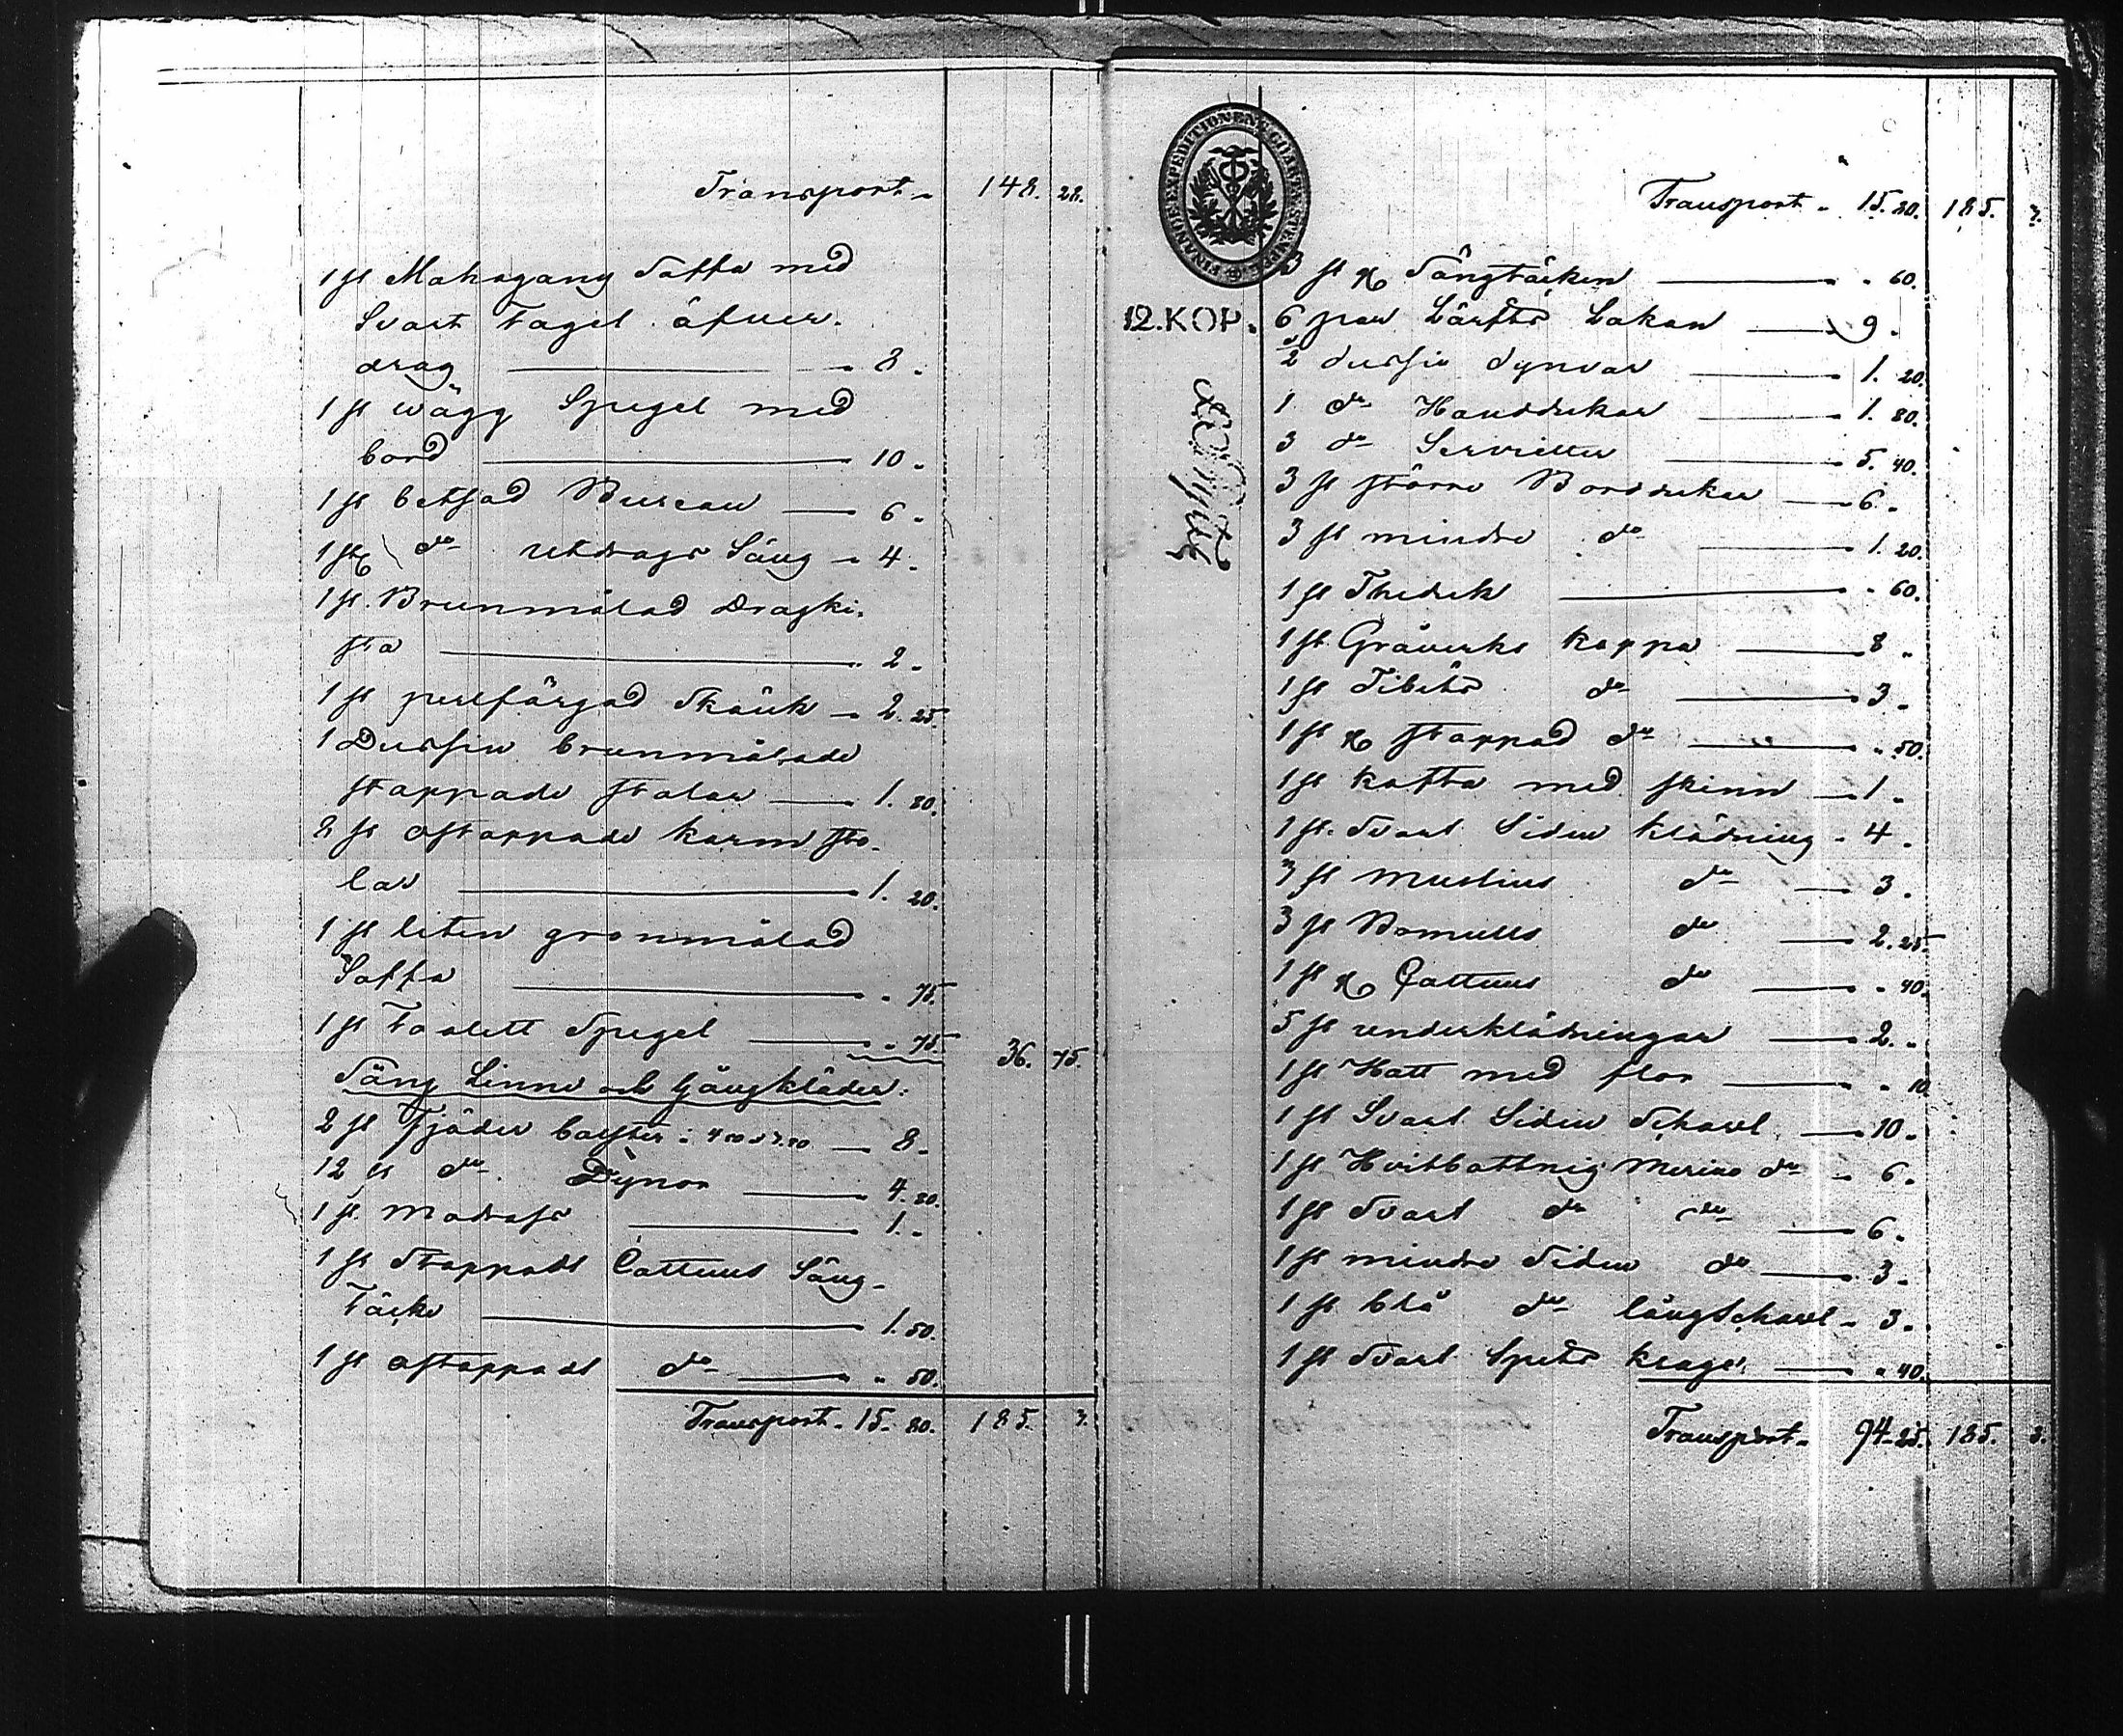 Transport " 148. 28.
1 st Mahogany Soffa med
Svart Tagel öfver-
drag " 8 "
1 st wägg Spegel med
bord " 10 "
1 st betsad Bureau " 6 "
1 st d:o utdrags Säng " 4 "
1 st. Brunmålad Dragki-
sta " 2 "
1 st perlfärgad Skänk " 2. 25
1 Dussin brunmålade
stoppade stolar " 1. 80.
2 st ostoppade karm sto-
lar " 1. 20.
1 st liten grönmålad
Soffa " " 75.
1 st Toalett Spegel " " 75. 36. 75.
Säng Linne och Gångkläder:
2 st Fjäder bolster " 8 "
12 st d:o Dynor " 4. 80.
1 st. Madrass " 1. "
1 st Stoppadt Cattuns Säng-
täcke " 1. 50.
1 st ostoppadt d:o " " 50.
Transport " 15. 80. 185. 3.
FINANCE EXPEDITIONENS CHARTÆ STEMPEL
12. KOP.
Transport " 15. 80. 185. 3.
3 st Sängtäcken " " 60.
6 par Lärfts Lakan " 9 "
2 dussin Dynvar " 1. 20.
1 d:o Handdukar " 1. 80.
3 d:o Servietter " 5. 40.
3 st större Bordukar " 6. "
3 st mindre d:o " 1. 20.
1 st Theduk " " 60.
1 st Gråverks kappa " 8 "
1 st Tibets d:o " 3 "
1 st stoppad d:o " " 50.
1 st kofta med skinn " 1 "
1 st. Svart Siden klädning " 4 "
3 st Muslins d:o " 3 "
3 st Bomulls d:o " 2. 25.
1 st Cattuns d:o " " 40.
5 st underklädningar " 2. "
1 st Hatt med flor " " 10
1 st Svart Siden Schavl " 10 "
1 st Hvitbottnig Merino d:o " 6 "
1 st Svart d:o d:o " 6 "
1 st mindre Siden d:o " 3 "
1 st blå d:o långSchavl " 3 "
1 st Svart Spets krage " " 40.
Transport " 94. 25. 185. 3.